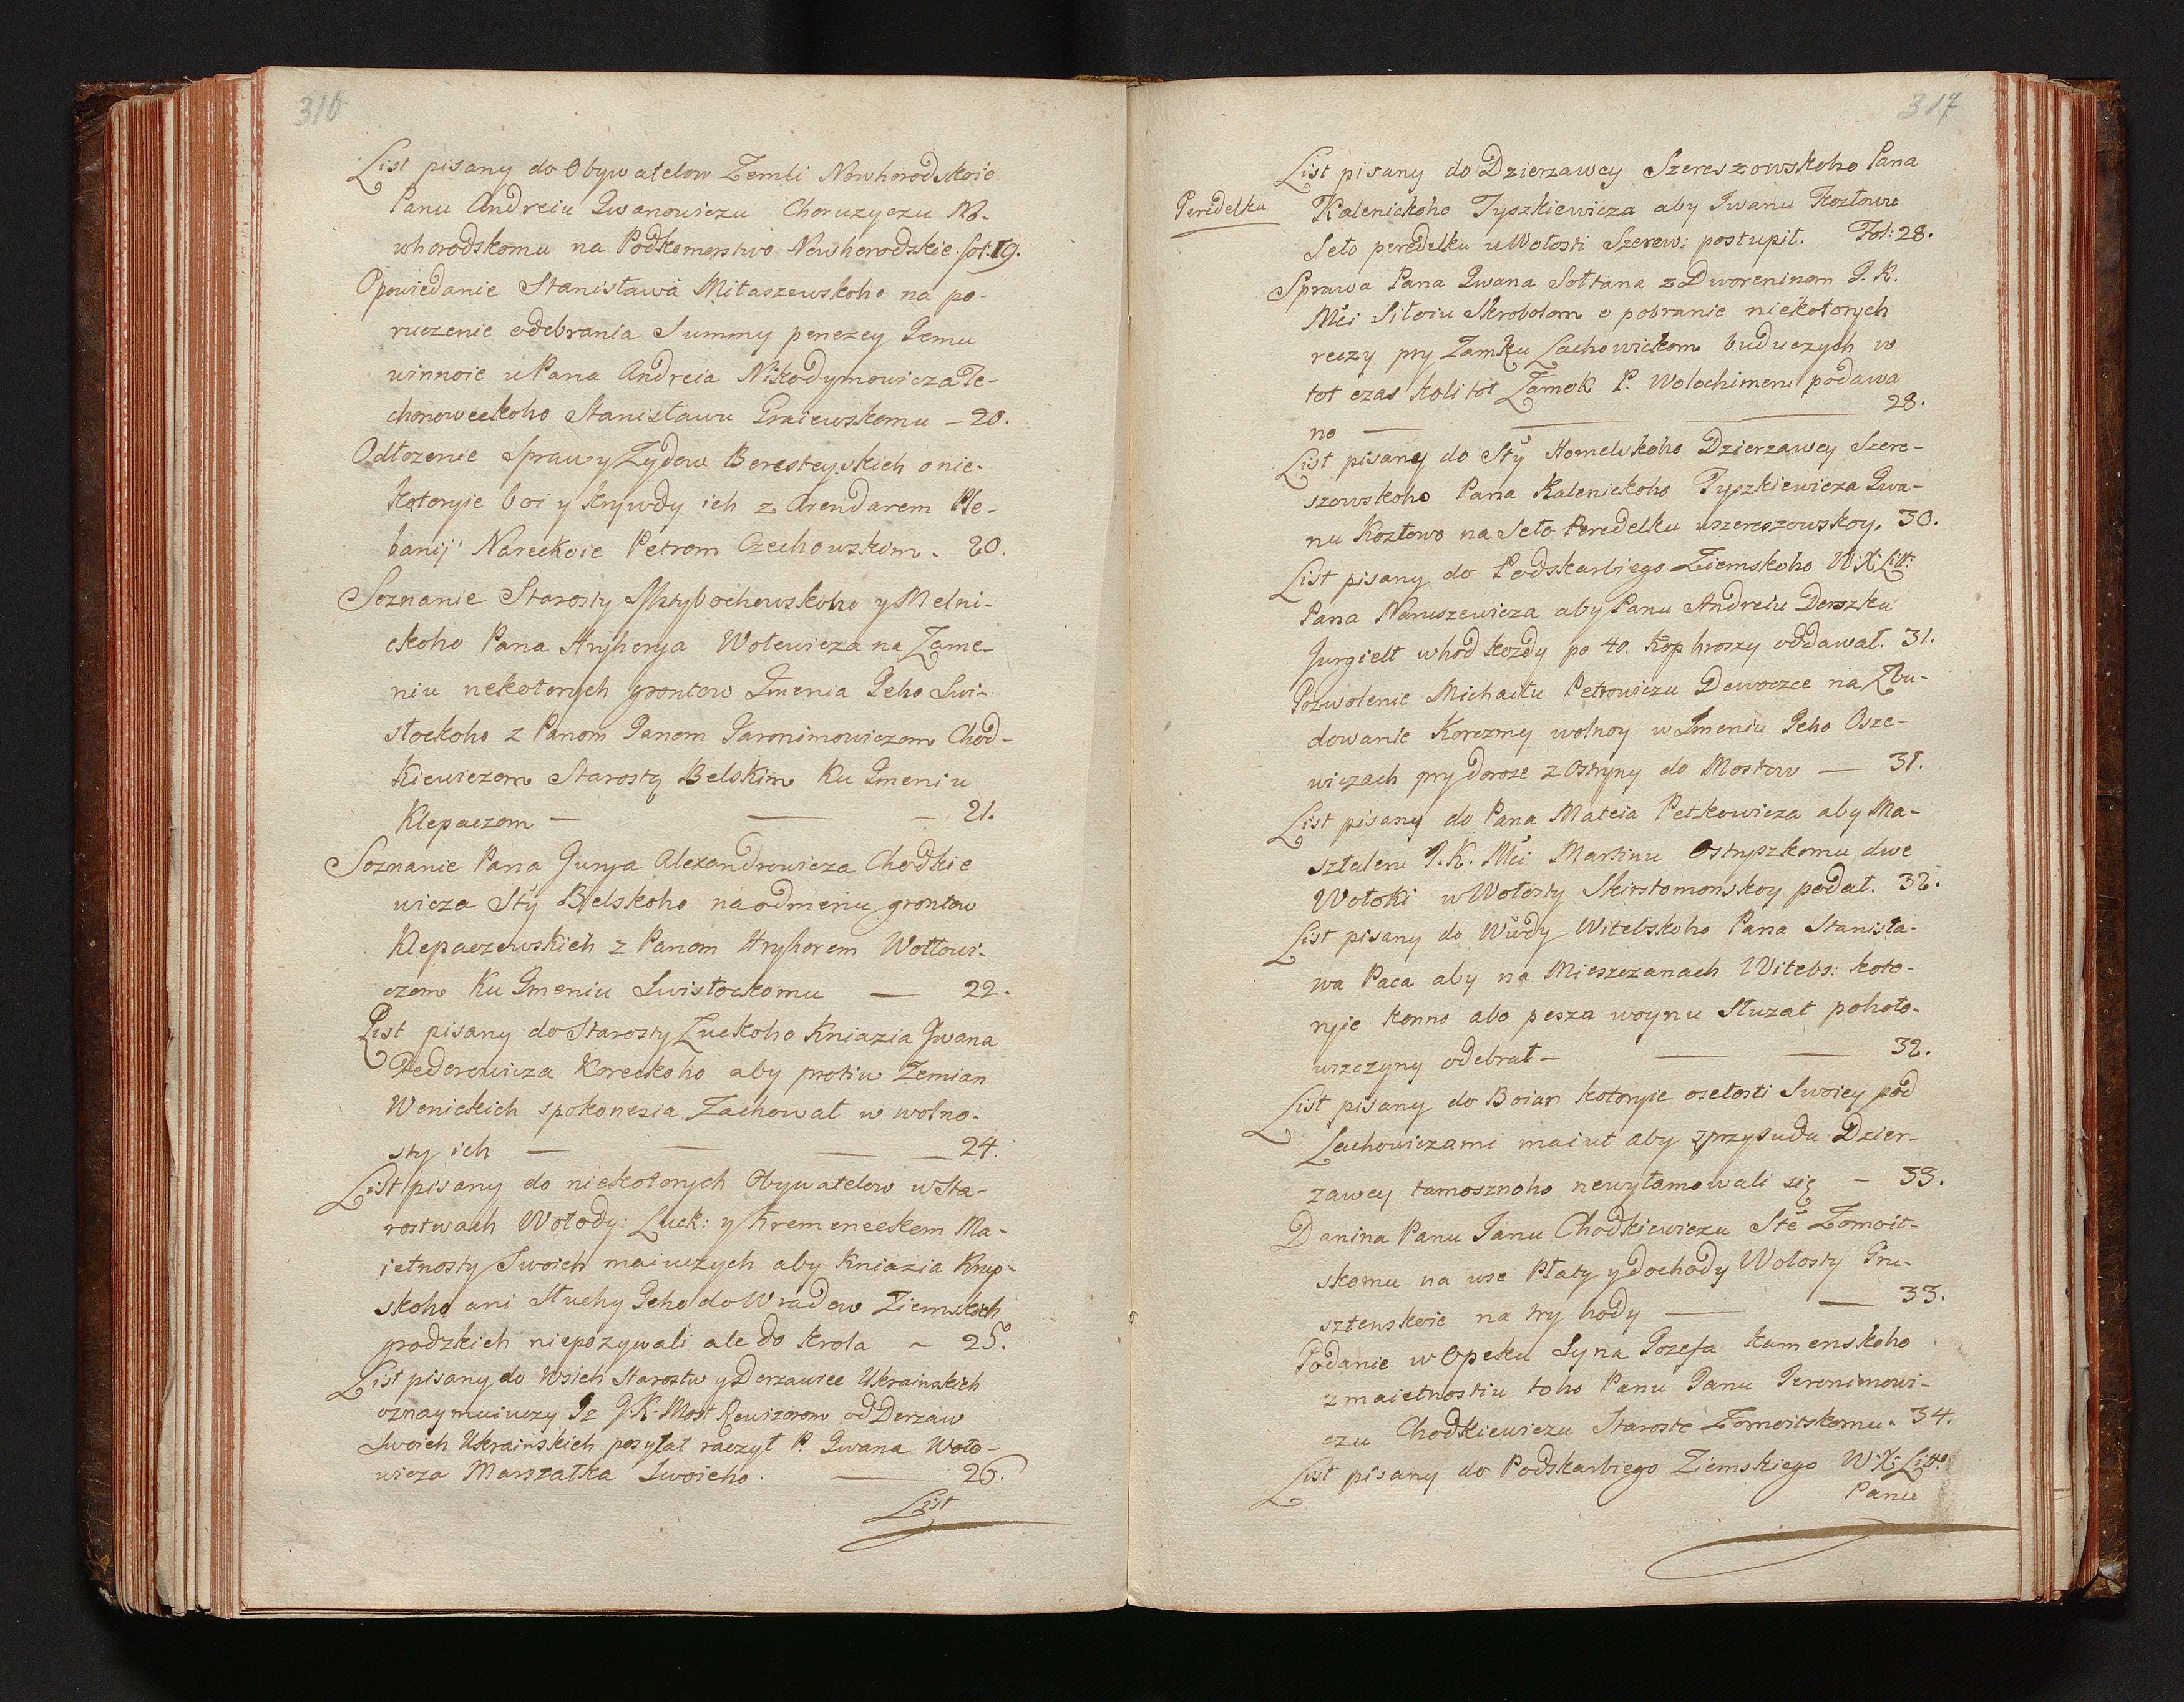 316
List pisany do Obywatelow Zemli Nowhorodskoie
Panu Andreiu Iwanowiczu Choruzyczu No-
whorodskomu na Podkomorstwo Nowhorodzkie. fol: 19.
Opowiedanie Stanisława Miłaszewskoho na po-
ruczenie odebrania Summy penezey Jemu
winnoie u Pana Andreia Nikodymowicza Te-
chonoweckoho Stanisławu Graiewskomu – 20.
Odłozenie Sprawy Zydow Beresteyskich o nie-
kotoryie boi y krywdy ich z Arendarem Ple-
banij Nareckoie Petrom Czechowskim. 20.
Soznanie Starosty Mstybochowskoho y Melni-
ckoho Pana Hryhorya Wołowicza na Zame-
niu nekotorych grontow Imenia Jeho Swi-
słockoho z Panom Janom Jaronimowiczom Chod-
kiewiczom Starostą Belskim Ku Imeniu
Klepaczom — — — 21.
Soznanie Pana Jurya Alexandrowicza Chodkie
wicza Sty Bielskoho na odmenu grontow
Klepaczewskich z Panom Hryhorem Wołłowi-
czom Ku Imeniu Swisłockomu — 22.
List pisany do Starosty Łuckoho Kniazia Iwana
Fedorowicza Koreckoho aby protiw Zemian
Wenickich spokonesia Zachował w wolno-
sty ich — — — — 24.
List pisany do niekotorych Obywatelow w Sta-
rostwach Wołody: Łuck: y Kremeneckom Ma-
ietnosty Swoich maiuczych aby Kniazia Krup-
skoho ani Słuchy Jeho do Wradow Ziemskich
grodzkich niepozywali ale do Krola ~ 25.
List pisany do Wsich Starostw y Derzawiec Ukrainskich
oznaymuiuczy Iz J. K. Most Rewizorom od Derzaw
Swoich Ukrainskich posyłat raczył P. Iwana Woło-
wicza Marszałka Swoieho. — 26.
List
317
List pisany do Dzierzawcy Szereszowskoho Pana
Peredelku
Kalenickoho Tyszkiewicza aby Iwanu Kozłowu
Seło peredelku u Wołosti Szerew: postupił. Fol: 28.
Sprawa Pana Iwana Sołtana z Dworeninom J. K.
Mći Silwiu Skrobotom o pobranie niekotorych
reczy pry Zamku Lachowickom buduczych w
tot czas koli tot Zamok P. Wolochimeru podawa
no — — — 28.
List pisany do Sty Homelskoho Dzierzawcy Szere-
szowskoho Pana Kalenickoho Tyszkiewicza Iwa-
nu Kozłowo na Seło Peredelku wszereszowskoy. 30.
List pisany do Podskarbiego Ziemskoho W: X: Litt:
Pana Naruszewicza aby Panu Andreiu Derszku
Jurgielt whod kozdy po 40. Kop hroszy oddawał. 31.
Pozwolenie Michaiłu Petrowiczu Dewoczce na Zbu-
dowanie Korczmy wolnoy w Imeniu Jeho Osze-
wiczach pry doroze z Ostryny do Mostow — 31.
List pisany do Pana Mateia Petkowicza aby Ma-
sztaleru J. K. Mći Martinu Ostryszkomu dwe
Wołoki w Wołosty Skirstomonskoy podał. 32.
List pisany do Wwdy Witebskoho Pana Stanisła-
wa Paca aby na Mieszczanach Witebs: koto-
ryie konno abo pesza woynu Słuzat pohoło-
wszczyny odebrał – — — 32.
List pisany do Boiar kotoryie osełosti Swoiey pod
Lachowiczami maiut aby z przysudu Dzier-
zawcy tamosznoho newyłamowali się – 33.
Danina Panu Janu Chodkiewiczu Stē Zomoit-
skomu na wse Płaty y dochody Wołosty Pru-
sztenskoie na try hody — — 33.
Podanie w Opeku Syna Jozefa Kamenskoho
z maietnostiu toho Panu Janu Jeronimowi-
czu Chodkiewiczu Staroste Zomoitskomu. 34.
List pisany do Podskarbiego Ziemskiego W: X: Litto
Panu